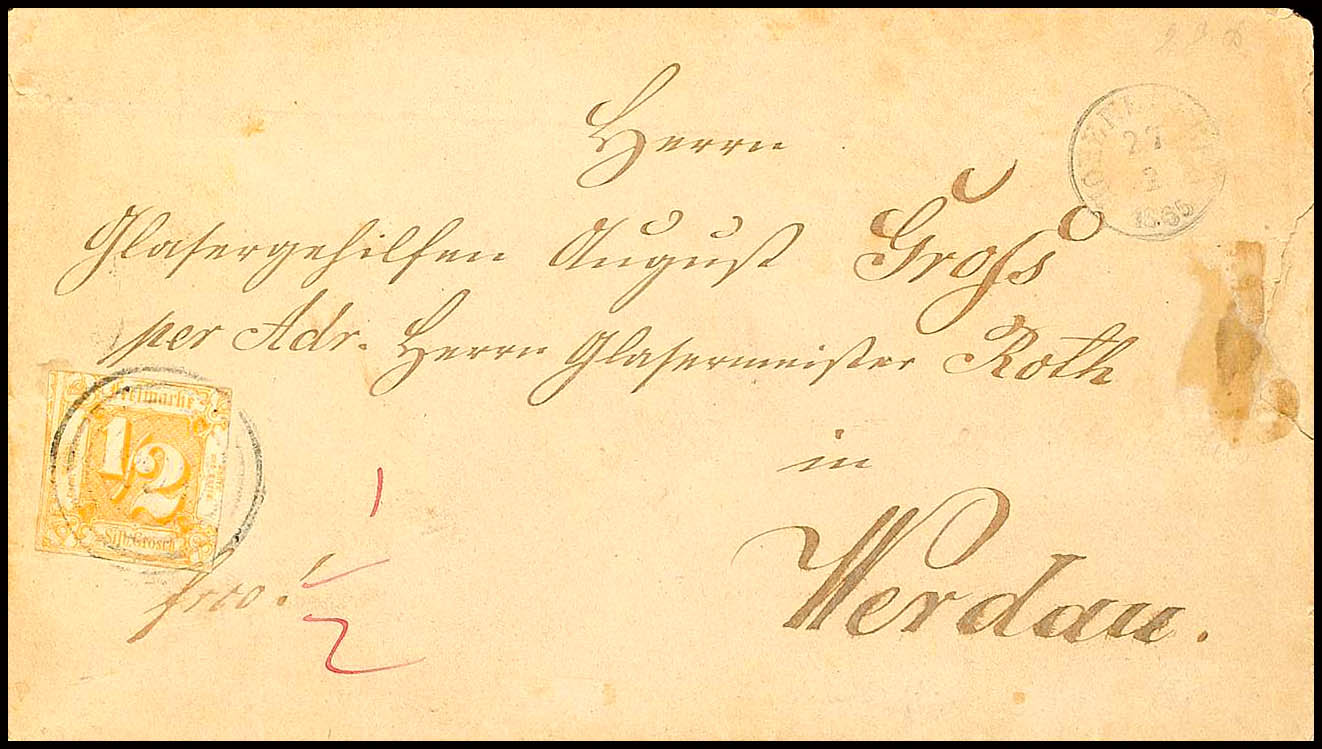 27
2
1865
Herrn
Glasergehilfen August Groß
per Adr. Herrn Glasermeister Roth
in
Werdau.
Freimarke
1/2
Silb. Grosch.
frco.
1/2